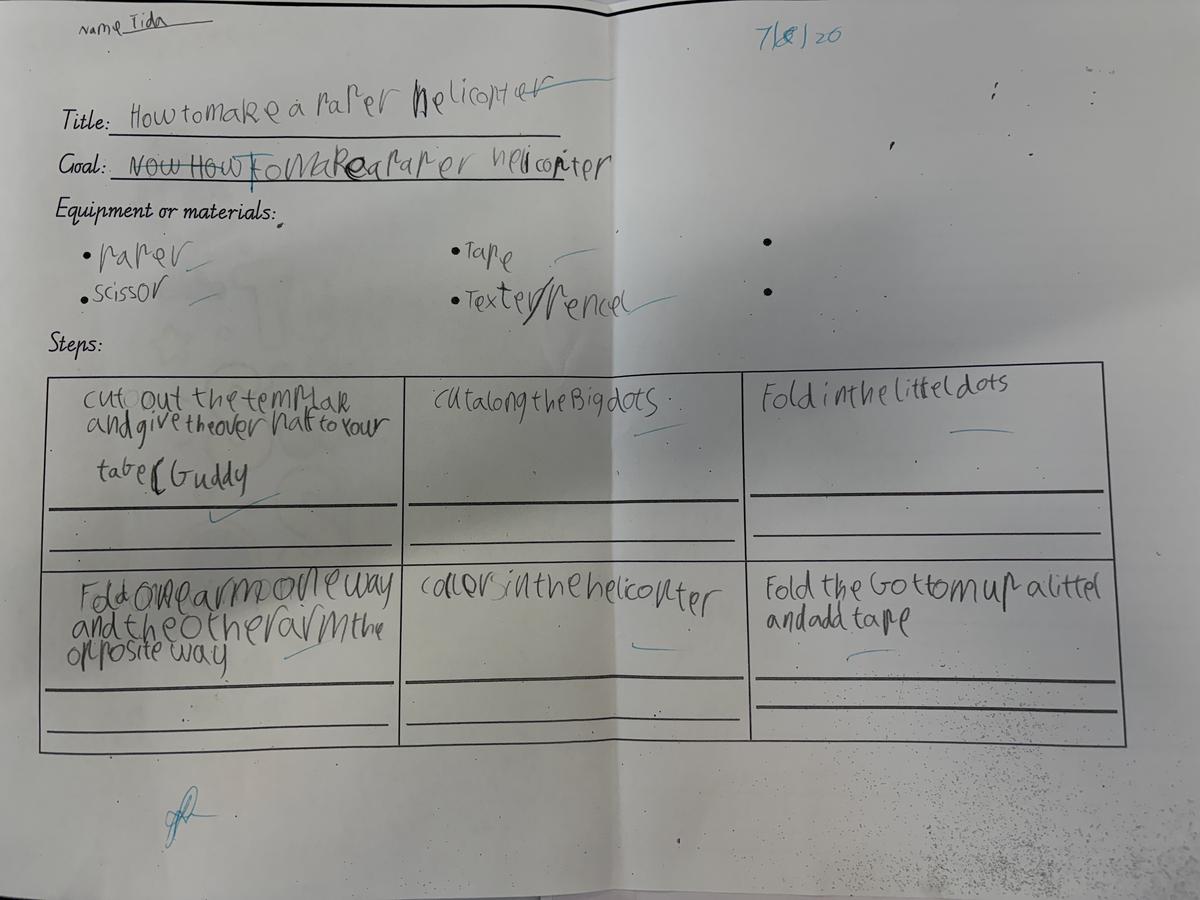 Name Tida
7/8/20
Title: How to make a paper helicopter
Goal: Now How To make a paper helicopter
Equipment or materials:
• paper
• Tape
•
• scissor
• Texter/pencel
•
Steps:
cut out the templak
and give the over half to your
tabel buddy
cut along the Big dots.
Fold in the littel dots
Fold one arm one way
and the other arm the
opposite way
colers in the helicopter
Fold the bottom up a littel
and add tape